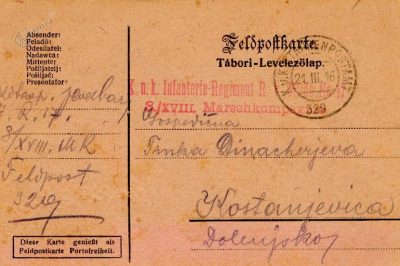 Absender:
Feladó:
Odesílatel:
Nadawca:
Mittente:
Pošiljatelj:
Pošiljač:
Presentator:
7. R. 17.
3/XVIII. MK
Feldpost
329
Diese Karte genießt als
Feldpostkarte Portofreiheit.
Feldpostkarte.
Tábori-Levelezőlap.
21. III. 16
K.u.k. Infanterie-Regiment
3/XVIII. Marschkompagnie
Gospodična
Tinka Dinacherjeva
Kostanjevica
Dolenjsko